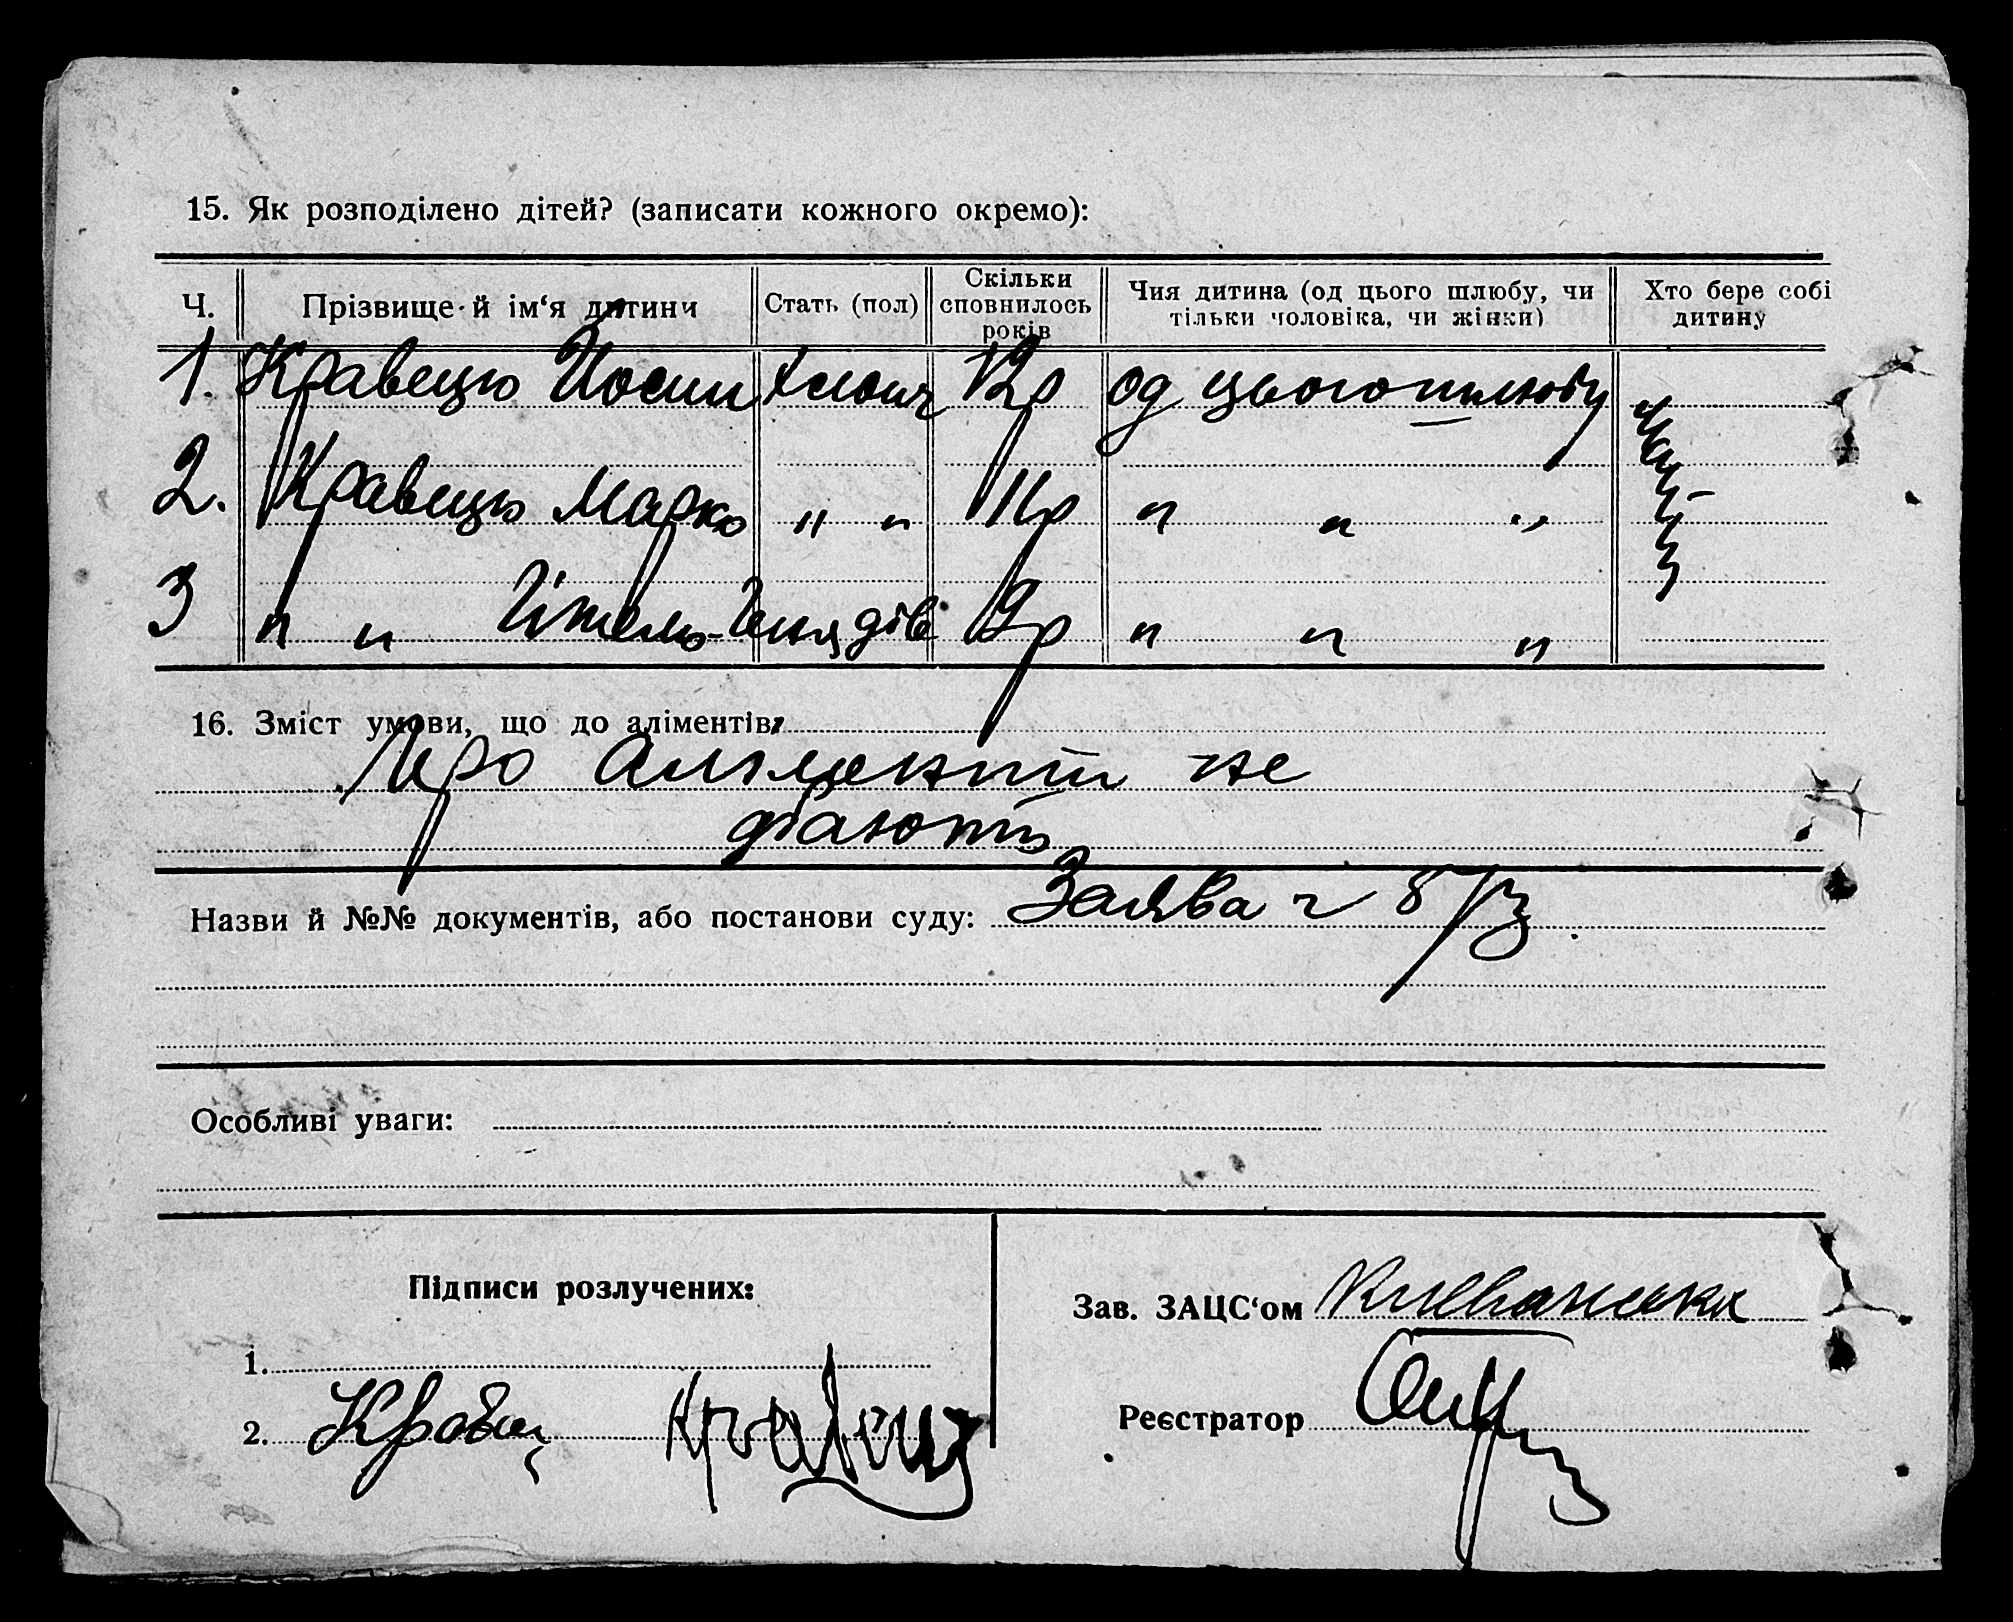 15. Як розподілено дітей? (записати кожного окремо):
Ч. Прізвище й ім'я дитини Стать (пол) Скільки сповнилось років Чия дитина (од цього шлюбу, чи тільки чоловіка, чи жінки) Хто бере собі дитину
1. Кравець Йосип хлопч 12р од цього шлюбу
2. Кравець Марко " " 11р " " "
3 " " дів 9р " " "
16. Зміст умови, що до аліментів:
Про аліменти не
дбають
Назви й №№ документів, або постанови суду: Заява ч
Особливі уваги:
Підписи розлучених:
Зав. ЗАЦС'ом
1.
Реєстратор
2. Кравец Кравец